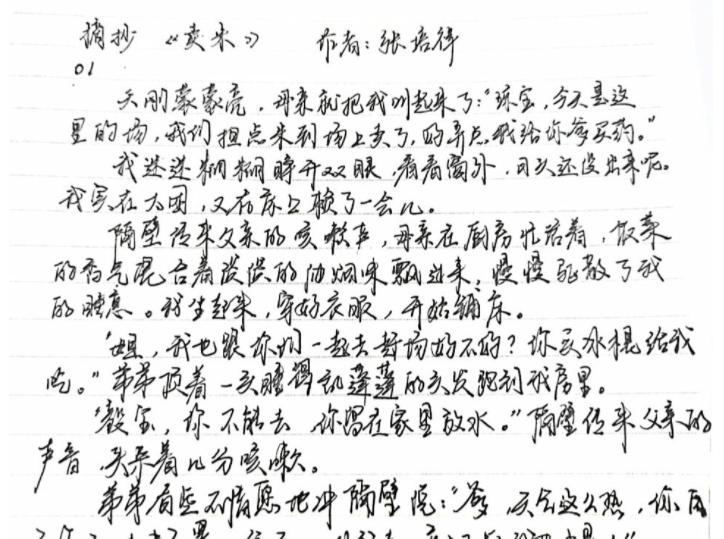 摘抄 《卖米》 作者:张培祥
01
天刚蒙蒙亮,母亲就把我叫起来了:“琼宝,今天是这
里的场,我们担点米到场上卖了,好弄点钱给你爹买药。”
我迷迷糊糊睁开双眼,看看窗外,日头还没出来呢。
我实在太困,又在床上赖了一会儿。
隔壁传来父亲的咳嗽声,母亲在厨房忙活着,饭菜
的香气混合着淡淡的油烟味飘过来,慢慢驱散了我
的睡意。我坐起来,穿好衣服,开始铺床。
“姐,我也跟你们一起去赶场好不好?你买冰棍给我
吃。”弟弟顶着一头睡得乱蓬蓬的头发跑到我房里。
“毅宝,你不能去,你留在家里放水。”隔壁传来父亲的
声音,夹杂着几分咳嗽。
弟弟有些不情愿地冲隔壁说:“爹,天气这么热,你自